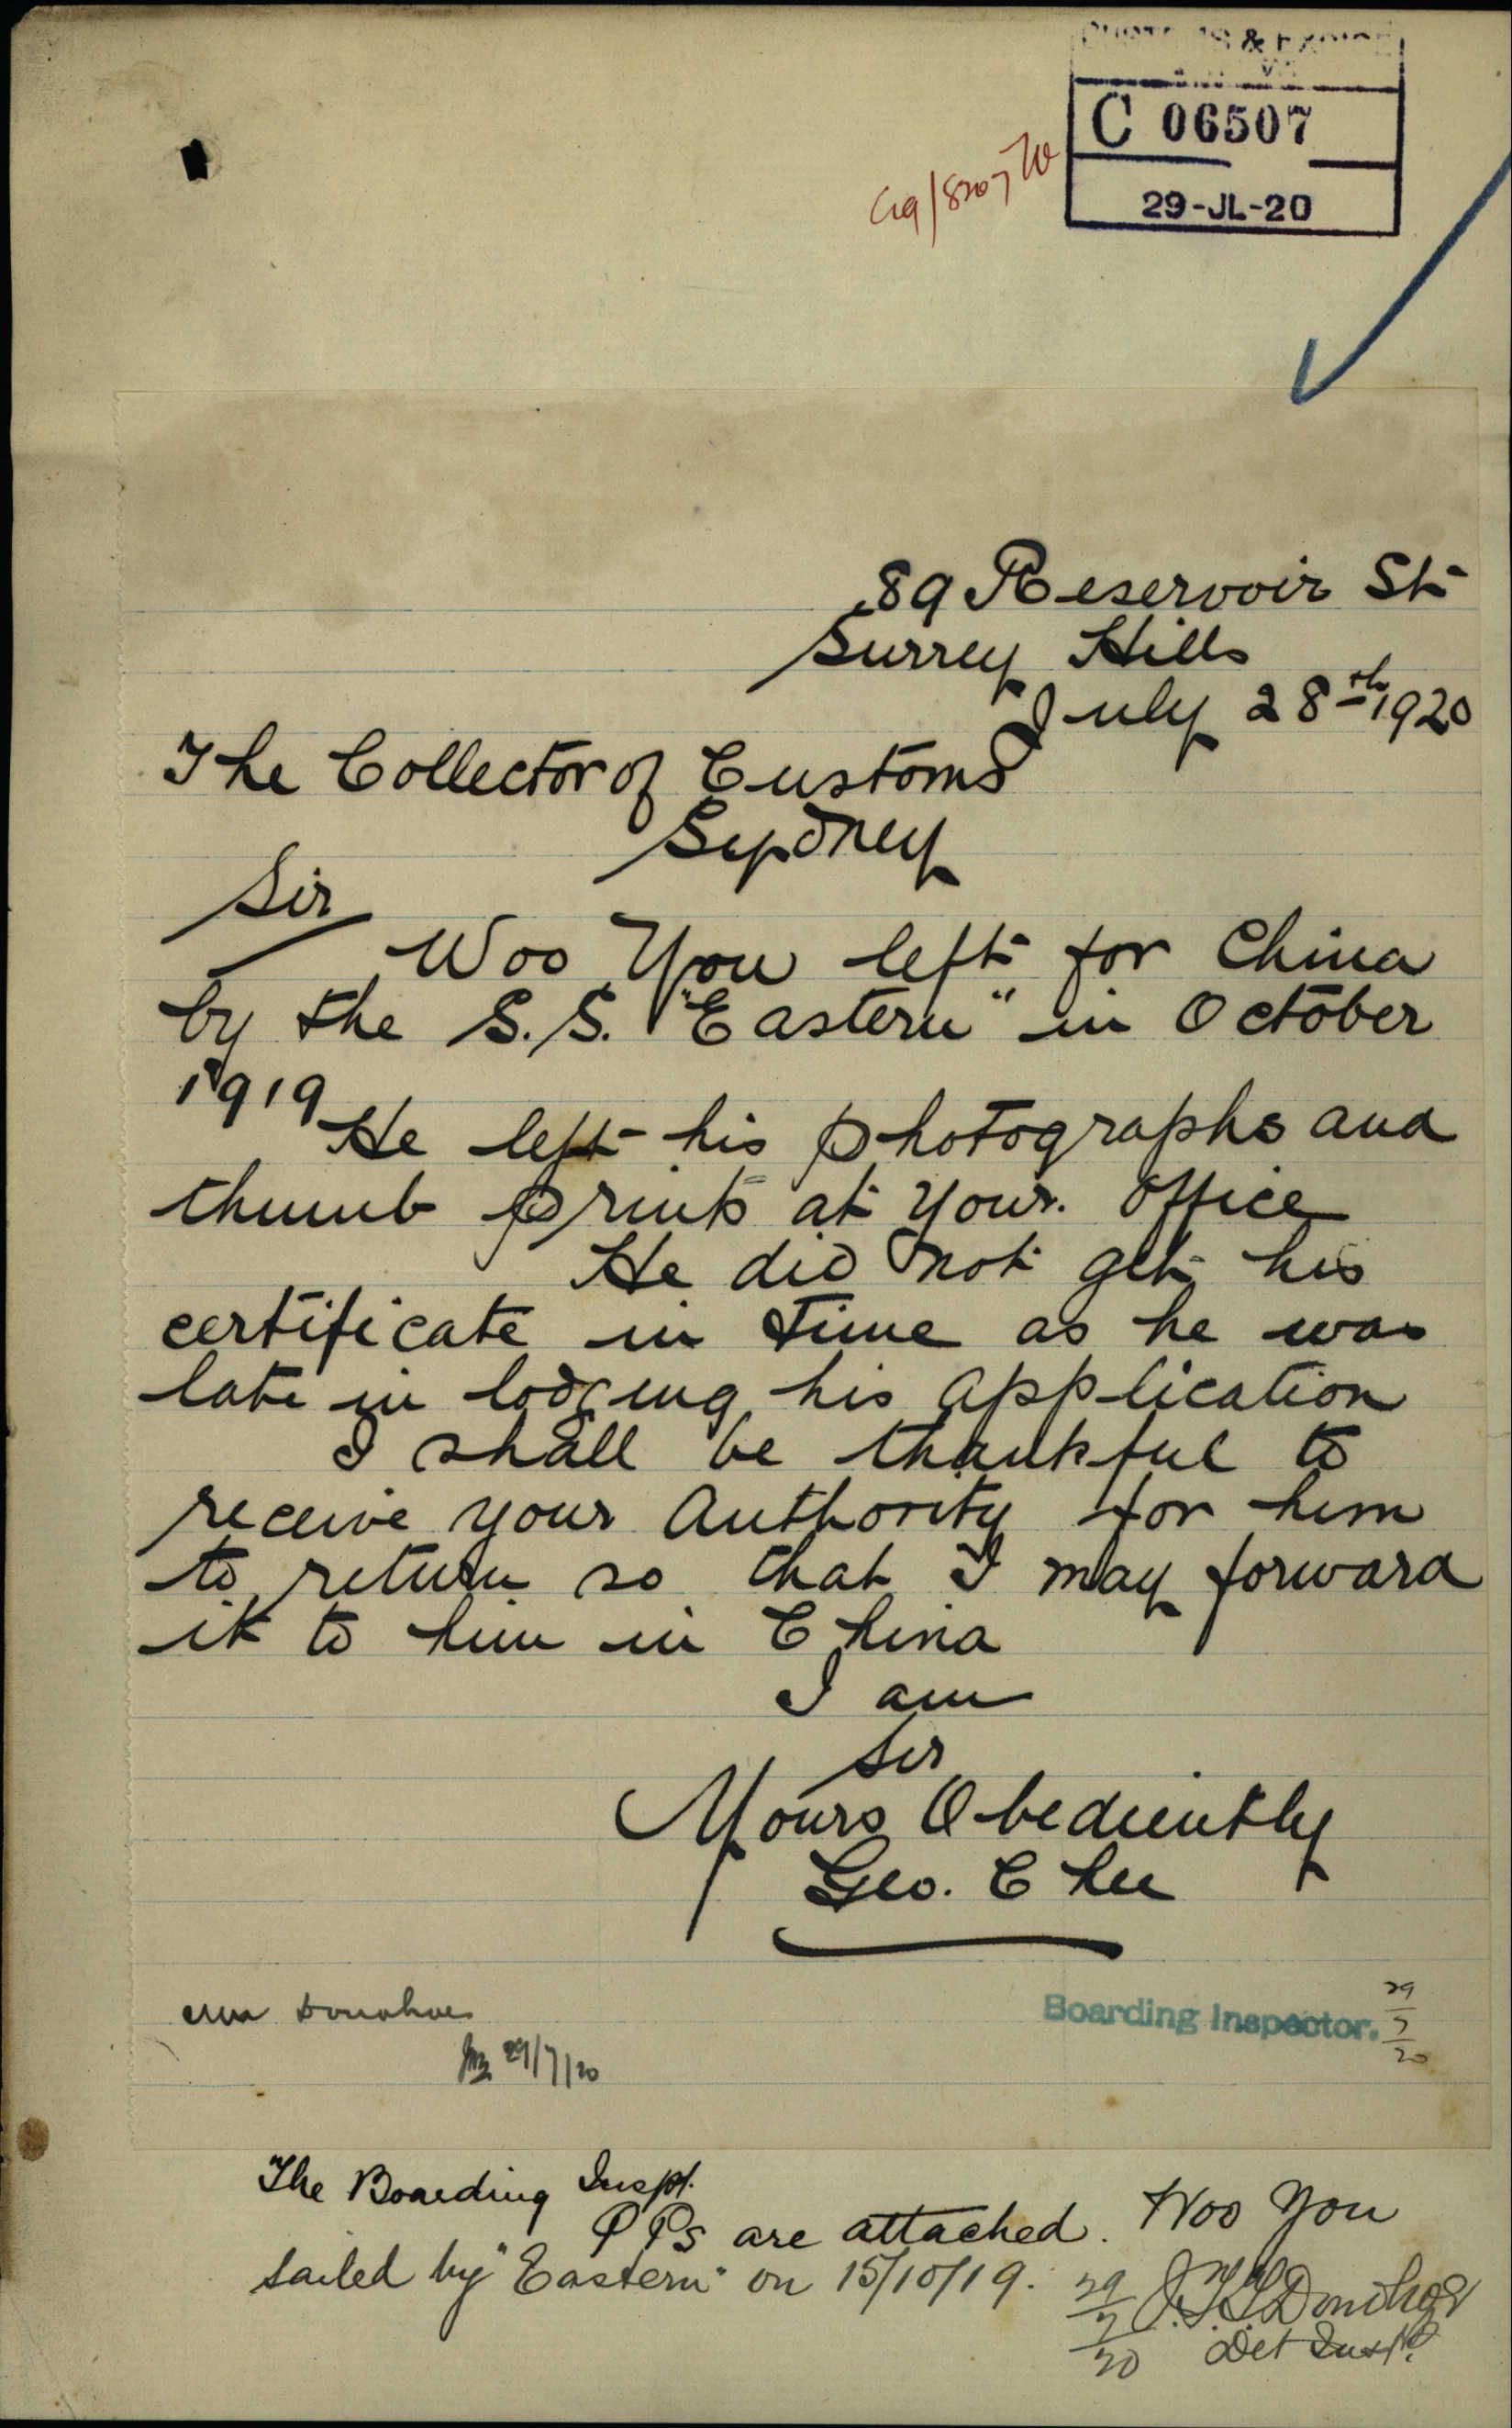 CUSTOMS & EXCISE
C 06507
29-JL-20
C19/8207
89 Reservoir St
Surrey Hills
July 28th 1920
The Collector of Customs
Sydney
Sir
Woo You left for China
by the S.S. "Eastern" in October
1919
He left his photographs and
thumb prints at your office
He did not get his
certificate in time as he was
late in lodging his application
I shall be thankful to
receive your Authority for him
to return so that I may forward
it to him in China
I am
Sir
Yours Obediently
Geo. Chee
Mr Donohoe
29/7/20
Boarding Inspector.
29
7
20
The Boarding Inspr.
PPs are attached. Woo You
sailed by "Eastern" on 15/10/19.
29
7
20
Donohoe
Det Inspr.